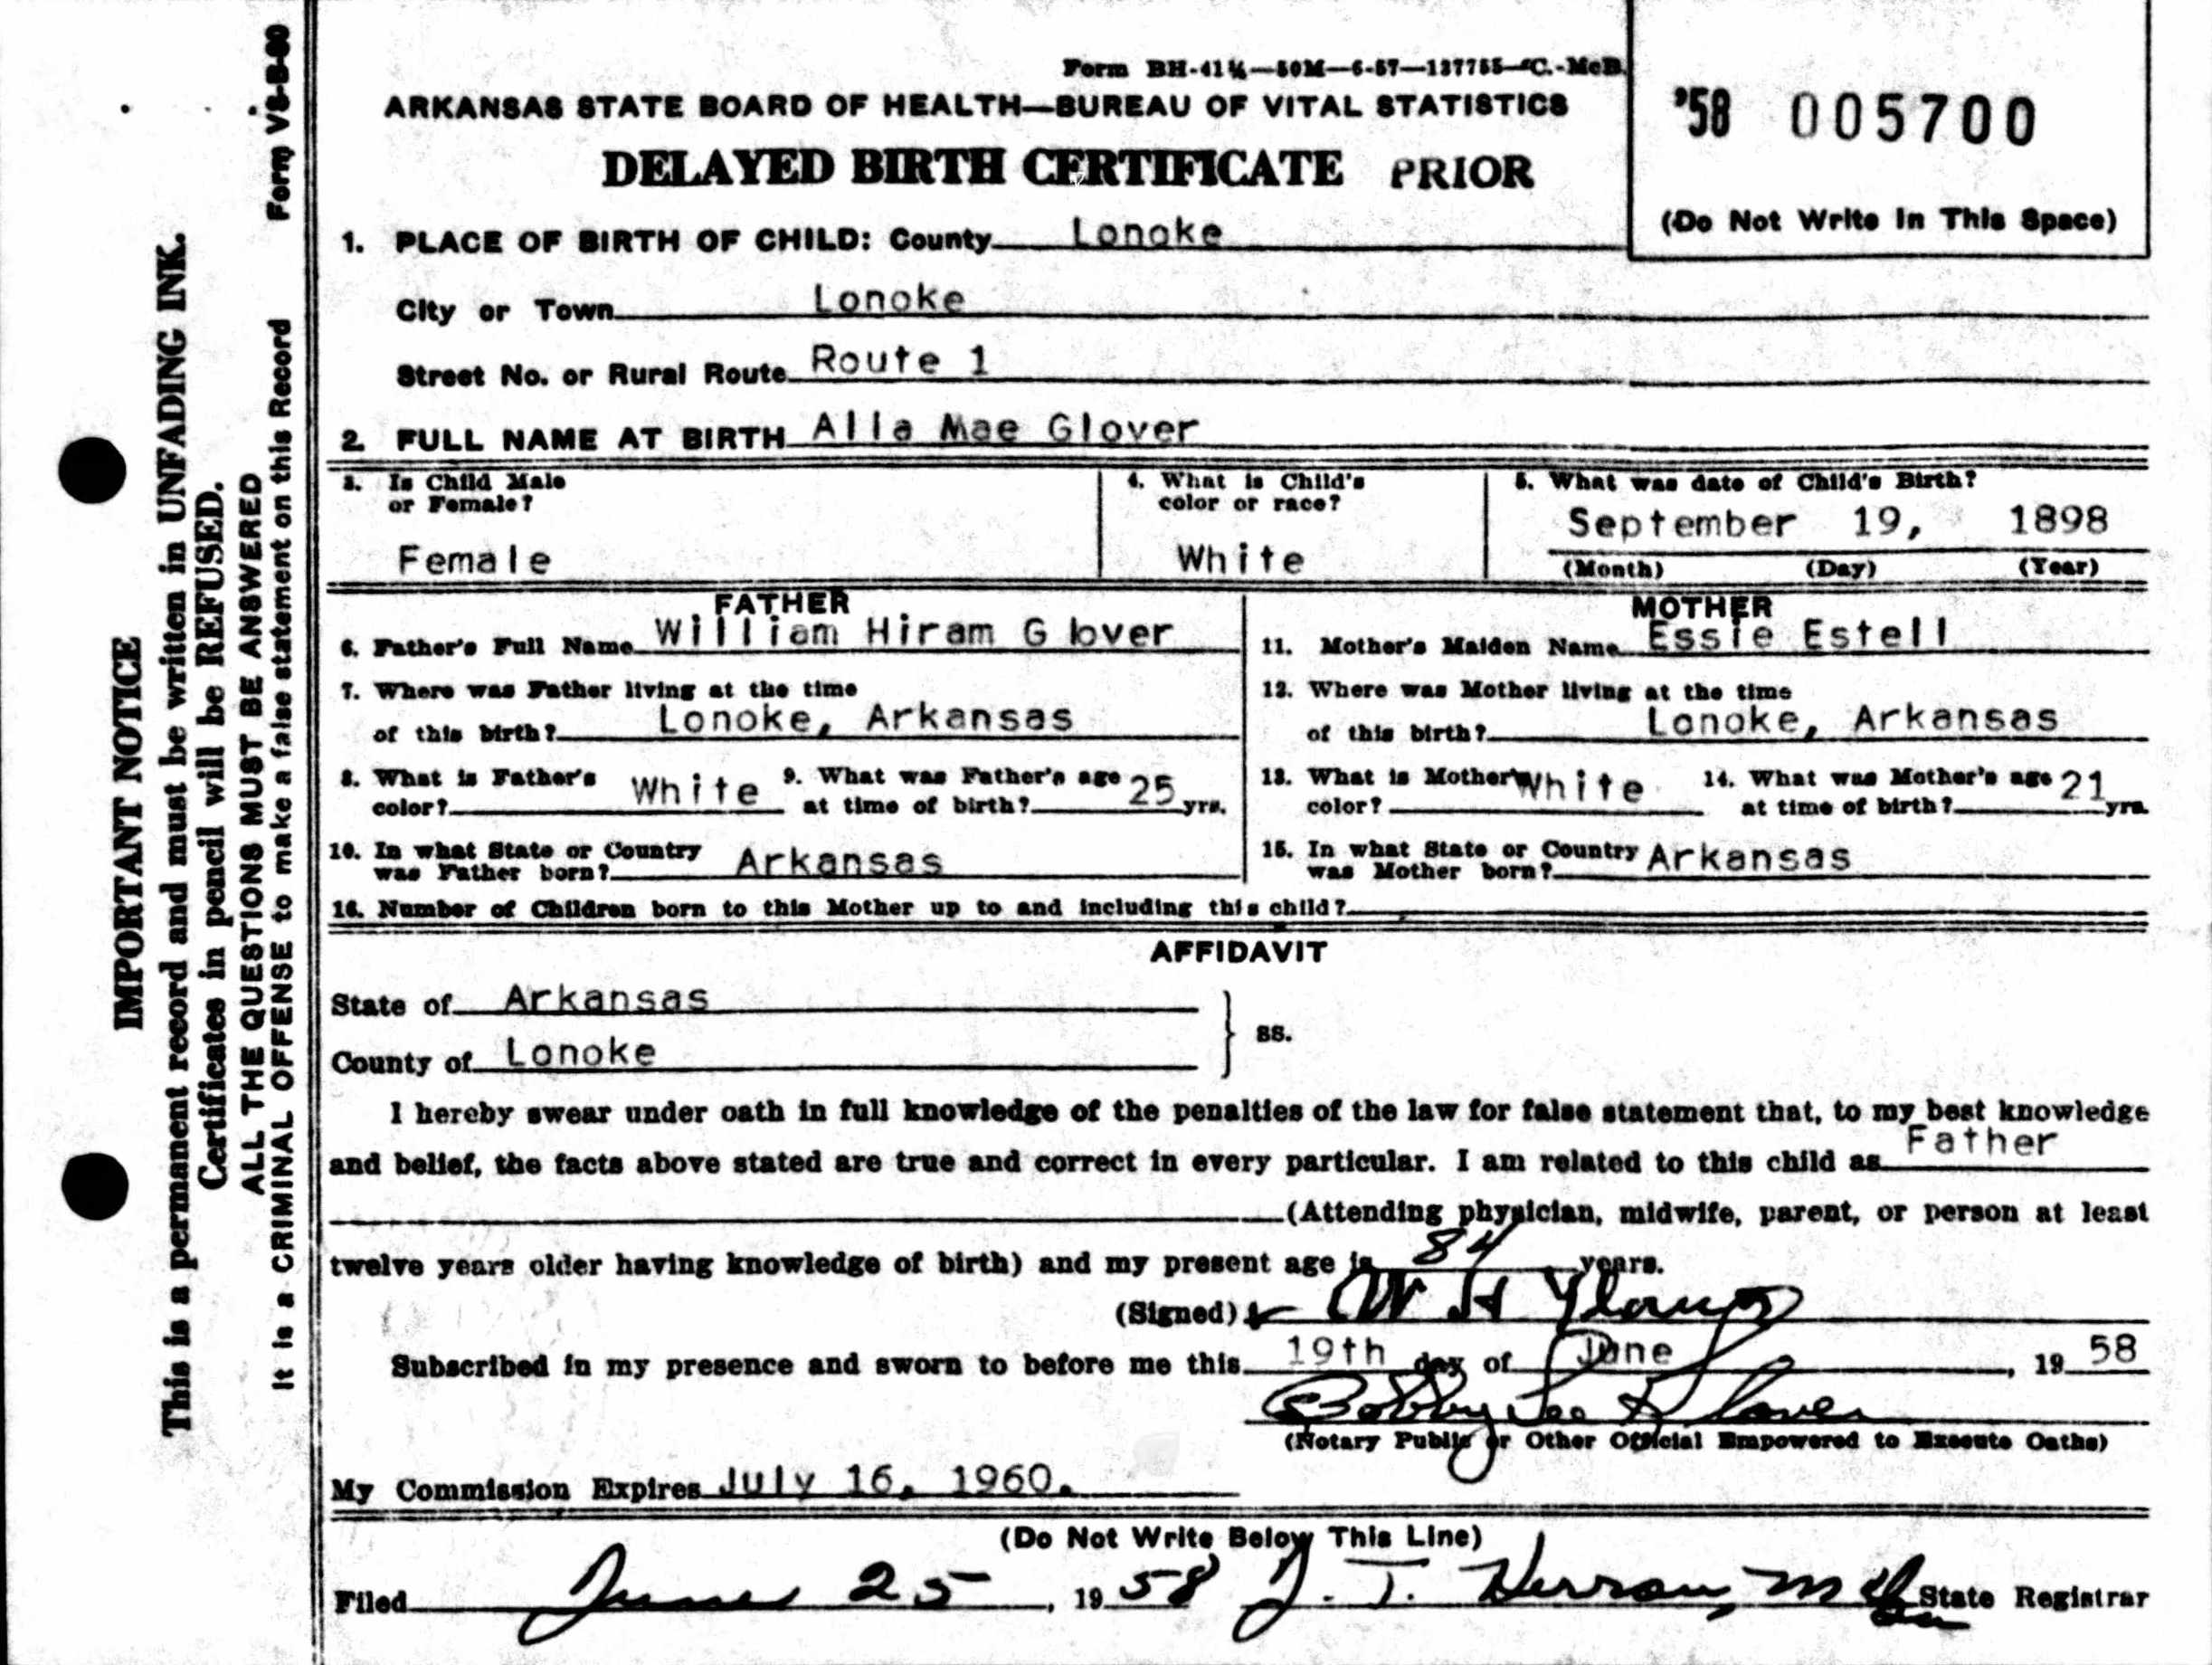 Form BH-41¼—50M—6-57—137755—C.-McB.
ARKANSAS STATE BOARD OF HEALTH—BUREAU OF VITAL STATISTICS
DELAYED BIRTH CERTIFICATE PRIOR
'58 005700
(Do Not Write in This Space)
1. PLACE OF BIRTH OF CHILD: County Lonoke
City or Town Lonoke
Street No. or Rural Route Route 1
2. FULL NAME AT BIRTH Alla Mae Glover
3. Is Child Male
or Female?
Female
4. What is Child's
color or race?
White
5. What was date of Child's Birth?
September 19, 1898
(Month) (Day) (Year)
FATHER
6. Father's Full Name William Hiram G lover
7. Where was Father living at the time
of this birth? Lonoke, Arkansas
8. What is Father's
color? White
9. What was Father's age
at time of birth? 25 yrs.
10. In what State or Country
was Father born? Arkansas
MOTHER
11. Mother's Maiden Name Essie Estell
12. Where was Mother living at the time
of this birth? Lonoke, Arkansas
13. What is Mother's
color? White
14. What was Mother's age
at time of birth? 21 yrs.
15. In what State or Country
was Mother born? Arkansas
16. Number of Children born to this Mother up to and including this child?
AFFIDAVIT
State of Arkansas
County of Lonoke
ss.
I hereby swear under oath in full knowledge of the penalties of the law for false statement that, to my best knowledge
and belief, the facts above stated are true and correct in every particular. I am related to this child as Father
(Attending physician, midwife, parent, or person at least
twelve years older having knowledge of birth) and my present age is 84 years.
(Signed) W H Glover
Subscribed in my presence and sworn to before me this 19th day of June, 19 58
Bobby Lee Glover
(Notary Public or Other Official Empowered to Execute Oaths)
My Commission Expires July 16, 1960.
(Do Not Write Below This Line)
Filed June 25, 19 58 J. T. Herron, M D State Registrar
Form VS-B-80
IMPORTANT NOTICE
This is a permanent record and must be written in UNFADING INK.
Certificates in pencil will be REFUSED.
ALL THE QUESTIONS MUST BE ANSWERED
It is a CRIMINAL OFFENSE to make a false statement on this Record